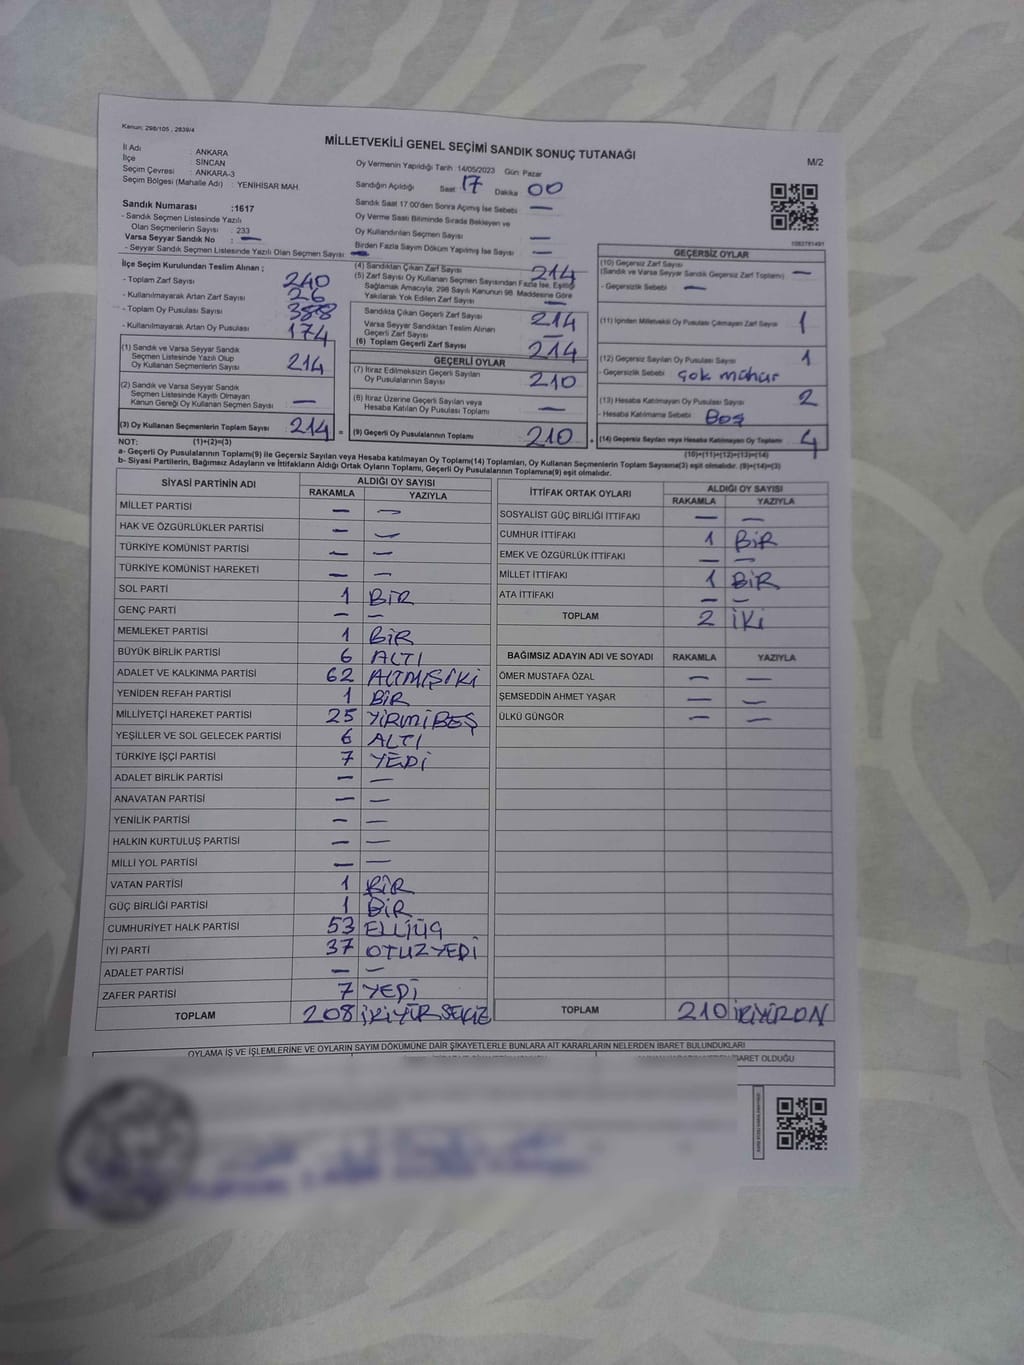 Kanun; 298/105 , 2839/4
MİLLETVEKİLİ GENEL SEÇİMİ SANDIK SONUÇ TUTANAĞI
M/2
İl Adı : ANKARA
İlçe : SİNCAN
Seçim Çevresi : ANKARA-3
Seçim Bölgesi (Mahalle Adı) : YENİHİSAR MAH.
Oy Vermenin Yapıldığı Tarih :14/05/2023 Gün: Pazar
Sandığın Açıldığı Saat 17 Dakika 00
Sandık Saat 17:00'den Sonra Açımış İse Sebebi —
Oy Verme Saati Bitiminde Sırada Bekleyen ve
Oy Kullandırılan Seçmen Sayısı —
Birden Fazla Sayım Döküm Yapılmış İse Sayısı —
Sandık Numarası :1617
- Sandık Seçmen Listesinde Yazılı
Olan Seçmenlerin Sayısı : 233
Varsa Seyyar Sandık No : —
- Seyyar Sandık Seçmen Listesinde Yazılı Olan Seçmen Sayısı —
İlçe Seçim Kurulundan Teslim Alınan ;
- Toplam Zarf Sayısı 240
- Kullanılmayarak Artan Zarf Sayısı 26
- Toplam Oy Pusulası Sayısı 388
- Kullanılmayarak Artan Oy Pusulası 174
(1) Sandık ve Varsa Seyyar Sandık
Seçmen Listesinde Yazılı Olup
Oy Kullanan Seçmenlerin Sayısı 214
(2) Sandık ve Varsa Seyyar Sandık
Seçmen Listesinde Kayıtlı Olmayan
Kanun Gereği Oy Kullanan Seçmen Sayısı —
(3) Oy Kullanan Seçmenlerin Toplam Sayısı 214
(4) Sandıktan Çıkan Zarf Sayısı 214
(5) Zarf Sayısı Oy Kullanan Seçmen Sayısından Fazla İse, Eşitliği
Sağlamak Amacıyla, 298 Sayılı Kanunun 98. Maddesine Göre
Yakılarak Yok Edilen Zarf Sayısı —
Sandıkta Çıkan Geçerli Zarf Sayısı 214
Varsa Seyyar Sandıktan Teslim Alınan
Geçerli Zarf Sayısı —
(6) Toplam Geçerli Zarf Sayısı 214
GEÇERLİ OYLAR
(7) İtiraz Edilmeksizin Geçerli Sayılan
Oy Pusulalarının Sayısı 210
(8) İtiraz Üzerine Geçerli Sayılan veya
Hesaba Katılan Oy Pusulası Toplamı —
= (9) Geçerli Oy Pusulalarının Toplamı 210
GEÇERSİZ OYLAR
(10) Geçersiz Zarf Sayısı
(Sandık ve Varsa Seyyar Sandık Geçersiz Zarf Toplamı) —
- Geçersizlik Sebebi —
(11) İçinden Milletvekili Oy Pusulası Çıkmayan Zarf Sayısı 1
(12) Geçersiz Sayılan Oy Pusulası Sayısı 1
- Geçersizlik Sebebi çok mühür
(13) Hesaba Katılmayan Oy Pusulası Sayısı 2
- Hesaba Katılmama Sebebi Boş
+ (14) Geçersiz Sayılan veya Hesaba Katılmayan Oy Toplamı 4
NOT: (1)+(2)=(3)
(10)+(11)+(12)+(13)=(14)
a- Geçerli Oy Pusulalarının Toplamı(9) ile Geçersiz Sayılan veya Hesaba katılmayan Oy Toplamı(14) Toplamları, Oy Kullanan Seçmenlerin Toplam Sayısına(3) eşit olmalıdır. (9)+(14)=(3)
b- Siyasi Partilerin, Bağımsız Adayların ve İttifakların Aldığı Ortak Oyların Toplamı, Geçerli Oy Pusulalarının Toplamına(9) eşit olmalıdır.
SİYASİ PARTİNİN ADI ALDIĞI OY SAYISI
RAKAMLA YAZIYLA
MİLLET PARTİSİ — —
HAK VE ÖZGÜRLÜKLER PARTİSİ — —
TÜRKİYE KOMÜNİST PARTİSİ — —
TÜRKİYE KOMÜNİST HAREKETİ — —
SOL PARTİ 1 BİR
GENÇ PARTİ — —
MEMLEKET PARTİSİ 1 BİR
BÜYÜK BİRLİK PARTİSİ 6 ALTI
ADALET VE KALKINMA PARTİSİ 62 ALTMIŞİKİ
YENİDEN REFAH PARTİSİ 1 BİR
MİLLİYETÇİ HAREKET PARTİSİ 25 YİRMİBEŞ
YEŞİLLER VE SOL GELECEK PARTİSİ 6 ALTI
TÜRKİYE İŞÇİ PARTİSİ 7 YEDİ
ADALET BİRLİK PARTİSİ — —
ANAVATAN PARTİSİ — —
YENİLİK PARTİSİ — —
HALKIN KURTULUŞ PARTİSİ — —
MİLLİ YOL PARTİSİ — —
VATAN PARTİSİ 1 BİR
GÜÇ BİRLİĞİ PARTİSİ 1 BİR
CUMHURİYET HALK PARTİSİ 53 ELLİÜÇ
İYİ PARTİ 37 OTUZYEDİ
ADALET PARTİSİ — —
ZAFER PARTİSİ 7 YEDİ
TOPLAM 208 İKİYÜZSEKİZ
İTTİFAK ORTAK OYLARI ALDIĞI OY SAYISI
RAKAMLA YAZIYLA
SOSYALİST GÜÇ BİRLİĞİ İTTİFAKI — —
CUMHUR İTTİFAKI 1 BİR
EMEK VE ÖZGÜRLÜK İTTİFAKI — —
MİLLET İTTİFAKI 1 BİR
ATA İTTİFAKI — —
TOPLAM 2 İKİ
BAĞIMSIZ ADAYIN ADI VE SOYADI RAKAMLA YAZIYLA
ÖMER MUSTAFA ÖZAL — —
ŞEMSEDDİN AHMET YAŞAR — —
ÜLKÜ GÜNGÖR — —
TOPLAM 210 İKİYÜZON
OYLAMA İŞ VE İŞLEMLERİNE VE OYLARIN SAYIM DÖKÜMÜNE DAİR ŞİKAYETLERLE BUNLARA AİT KARARLARIN NELERDEN İBARET BULUNDUKLARI
İBARET OLDUĞU